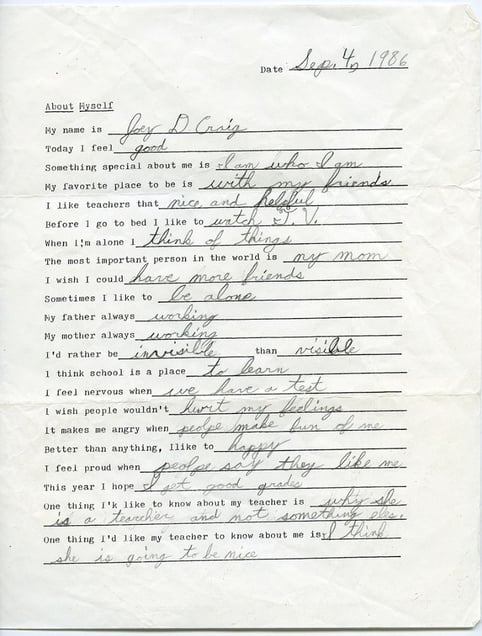 Date Sep. 4, 1986
About Myself
My name is Joey D Craig
Today I feel good
Something special about me is I am who I am
My favorite place to be is with my friends
I like teachers that nice and helpful
Before I go to bed I like to watch T.V.
When I'm alone I think of things
The most important person in the world is my mom
I wish I could have more friends
Sometimes I like to be alone
My father always working
My mother always working
I'd rather be invisible than visible
I think school is a place to learn
I feel nervous when we have a test
I wish people wouldn't hurt my feelings
It makes me angry when peolpe make fun of me
Better than anything, Ilike to happy
I feel proud when peolpe say they like me
This year I hope I get good grades
One thing I'k like to know about my teacher is why she
is a tearcher and not something eles.
One thing I'd like my teacher to know about me is I think
she is going to be nice